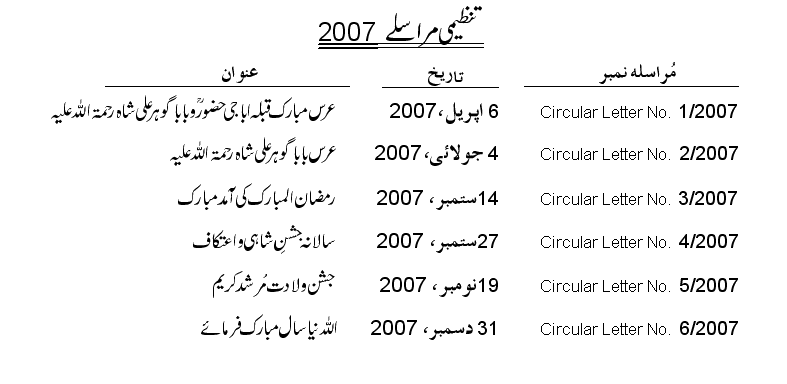 تنظیمی مراسلے 2007
مُراسلہ نمبر تاریخ عنوان
Circular Letter No. 1/2007 6 اپریل، 2007 عرس مبارک قبلہ اباجی حضورؒ و بابا گوہر علی شاہ رحمۃ اللہ علیہ
Circular Letter No. 2/2007 4 جولائی، 2007 عرس بابا گوہر علی شاہ رحمۃ اللہ علیہ
Circular Letter No. 3/2007 14 ستمبر، 2007 رمضان المبارک کی آمد مبارک
Circular Letter No. 4/2007 27 ستمبر، 2007 سالانہ جشنِ شاہی و اعتکاف
Circular Letter No. 5/2007 19 نومبر، 2007 جشن ولادت مُرشد کریم
Circular Letter No. 6/2007 31 دسمبر، 2007 اللہ نیا سال مبارک فرمائے